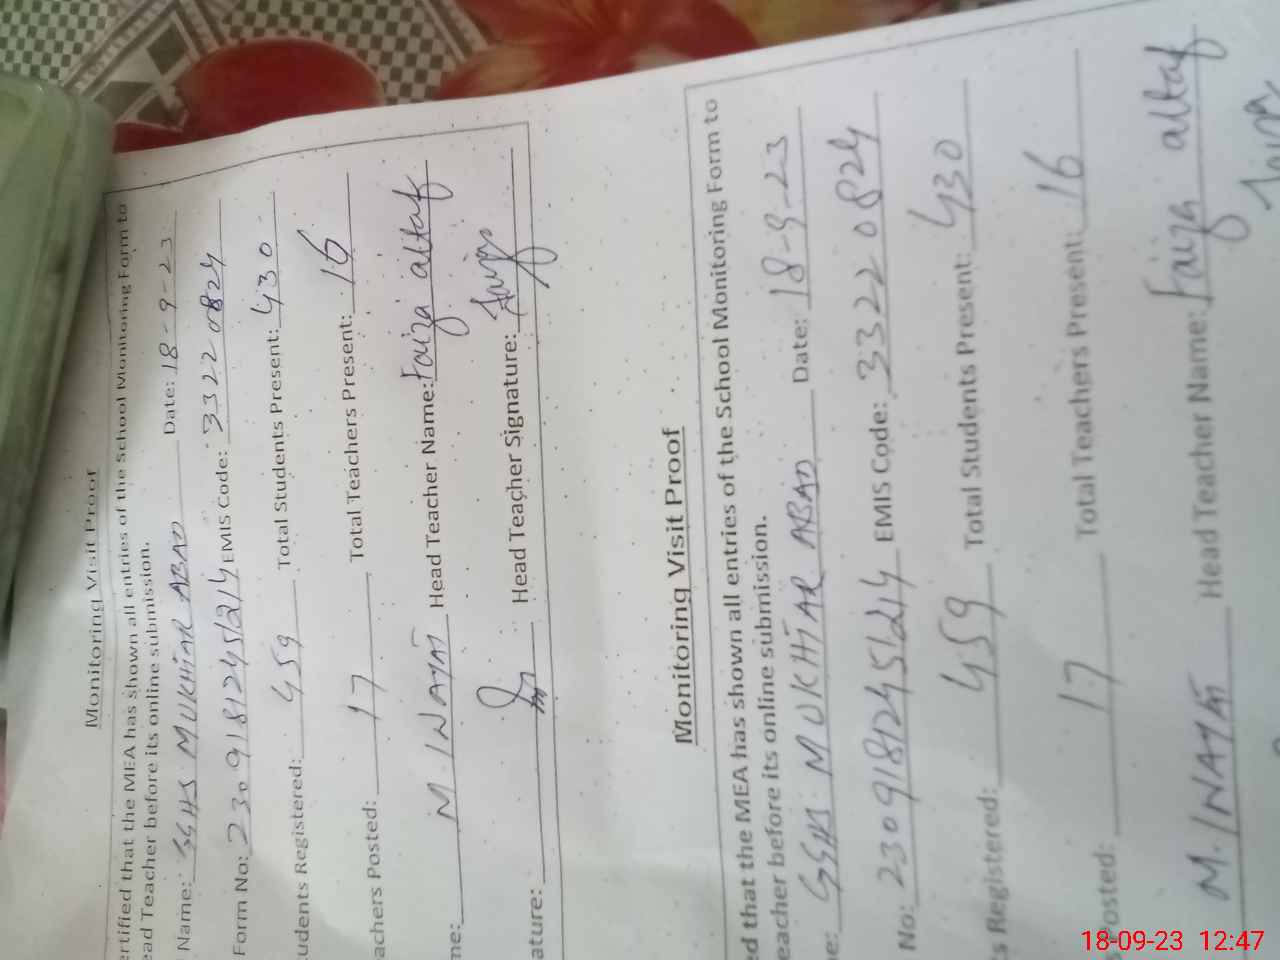 Monitoring Visit Proof
ertified that the MEA has shown all entries of the School Monitoring Form to
ead Teacher before its online submission.
Name: GGHS MUKHTAR ABAD Date: 18-9-23
Form No: 23091812451214 EMIS Code: 33220824
tudents Registered: 459 Total Students Present: 430
achers Posted: 17 Total Teachers Present: 16
me: M. INAYAT Head Teacher Name: Faiza altaf
ature: Head Teacher Signature: Faiza
Monitoring Visit Proof
ed that the MEA has shown all entries of the School Monitoring Form to
eacher before its online submission.
e: GGHS MUKHTAR ABAD Date: 18-9-23
No: 23091812451214 EMIS Code: 33220824
s Registered: 459 Total Students Present: 430
Posted: 17 Total Teachers Present: 16
M. INAYAT Head Teacher Name: Faiza altaf
Faiza
18-09-23 12:47